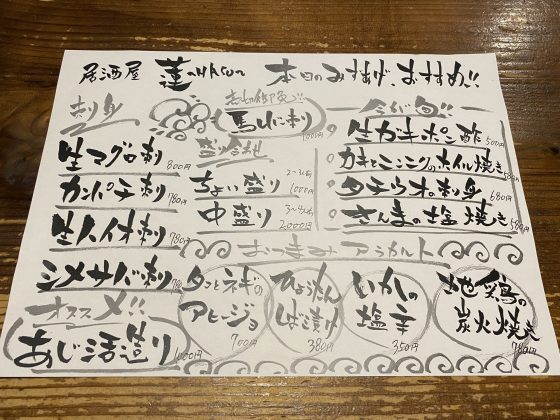 居酒屋 蓮 本日のおすすめ!!
刺身
生マグロ刺 800円
カンパチ刺 780円
生ハイオ刺 780円
シメサバ刺
オススメ!!
あじ活造り 1000円
馬山に刺
盛り合わせ
ちょい盛り 2〜3人前 1000円
中盛り 3〜4人前 2000円
今が旬!!
生ガキポン酢 500円
カキとニンニクのホイル焼き
タチウオ刺身 680円
さんまの塩焼き
おつまみアラカルト
タコとネギのアヒージョ 700円
ひょうたんしば漬け 380円
いかの塩辛 350円
地鶏の炭火焼き 780円